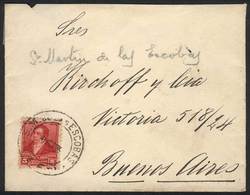 Sres
Sn Martin de las Escobas
Kirchoff y Cia
Victoria 518/24
Buenos Aires
ESCOBAS
5